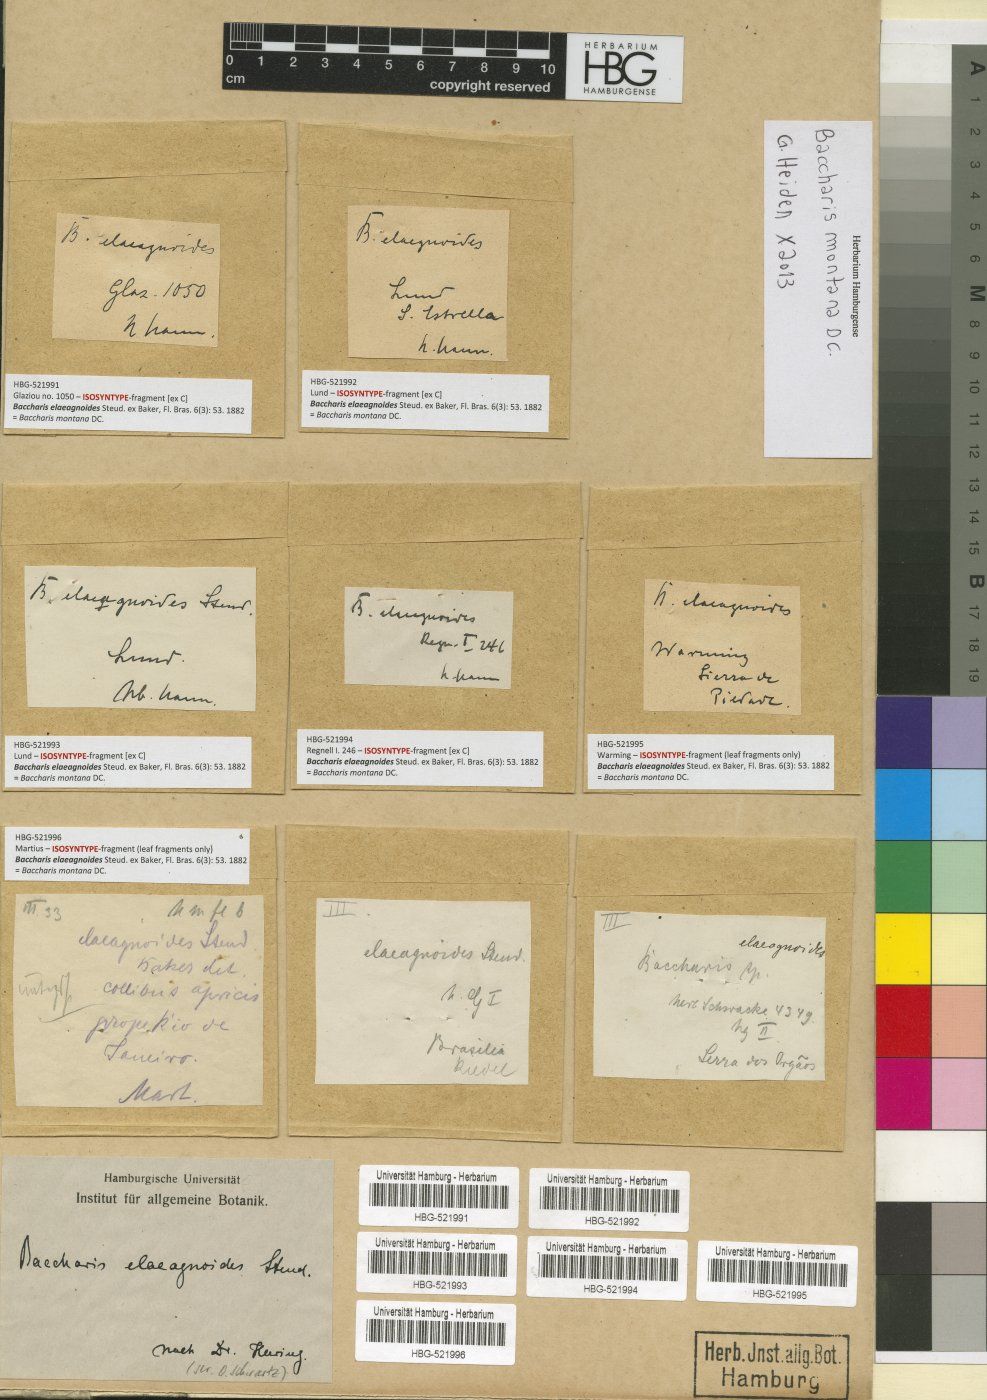 0 1 2 3 4 5 6 7 8 9 10
cm
copyright reserved
HERBARIUM
HBG
HAMBURGENSE
Herbarium Hamburgense
Baccharis montana DC.
G. Heiden X 2013
B. elaeagnoides
Glaz. 1050
h haun.
HBG-521991
Glaziou no. 1050 – ISOSYNTYPE-fragment [ex C]
Baccharis elaeagnoides Steud. ex Baker, Fl. Bras. 6(3): 53. 1882
= Baccharis montana DC.
B. elaegnoides
Lund
S. Estrella
h. haun.
HBG-521992
Lund – ISOSYNTYPE-fragment [ex C]
Baccharis elaeagnoides Steud. ex Baker, Fl. Bras. 6(3): 53. 1882
= Baccharis montana DC.
B. elaeagnoides Steud.
Lund.
hb. haun.
HBG-521993
Lund – ISOSYNTYPE-fragment [ex C]
Baccharis elaeagnoides Steud. ex Baker, Fl. Bras. 6(3): 53. 1882
= Baccharis montana DC.
B. elaegnoides
Regn. I 246
h haun
HBG-521994
Regnell I. 246 – ISOSYNTYPE-fragment [ex C]
Baccharis elaeagnoides Steud. ex Baker, Fl. Bras. 6(3): 53. 1882
= Baccharis montana DC.
B. elaeagnoides
Warming
Sierra de
Piedade.
HBG-521995
Warming – ISOSYNTYPE-fragment (leaf fragments only)
Baccharis elaeagnoides Steud. ex Baker, Fl. Bras. 6(3): 53. 1882
= Baccharis montana DC.
HBG-521996
Martius – ISOSYNTYPE-fragment (leaf fragments only)
Baccharis elaeagnoides Steud. ex Baker, Fl. Bras. 6(3): 53. 1882
= Baccharis montana DC.
III 33
h m fl b
elaeagnoides Steud.
Baker det.
collibus apricis
prope Rio de
Janeiro.
Mart.
III.
elaeagnoides Steud.
Brasilia
Riedel
III
elaeagnoides
Baccharis sp.
herb Schwacke 4349.
hg II
Serra dos Orgãos
Hamburgische Universität
Institut für allgemeine Botanik.
Baccharis elaeagnoides Steud.
nach Dr. Heering.
(scr. O. Schwartz)
Universität Hamburg - Herbarium
HBG-521991
Universität Hamburg - Herbarium
HBG-521992
Universität Hamburg - Herbarium
HBG-521993
Universität Hamburg - Herbarium
HBG-521994
Universität Hamburg - Herbarium
HBG-521995
Universität Hamburg - Herbarium
HBG-521996
Herb. Inst. allg. Bot.
Hamburg
A 1 2 3 4 5 6 M 8 9 10 11 12 13 14 15 B 17 18 19